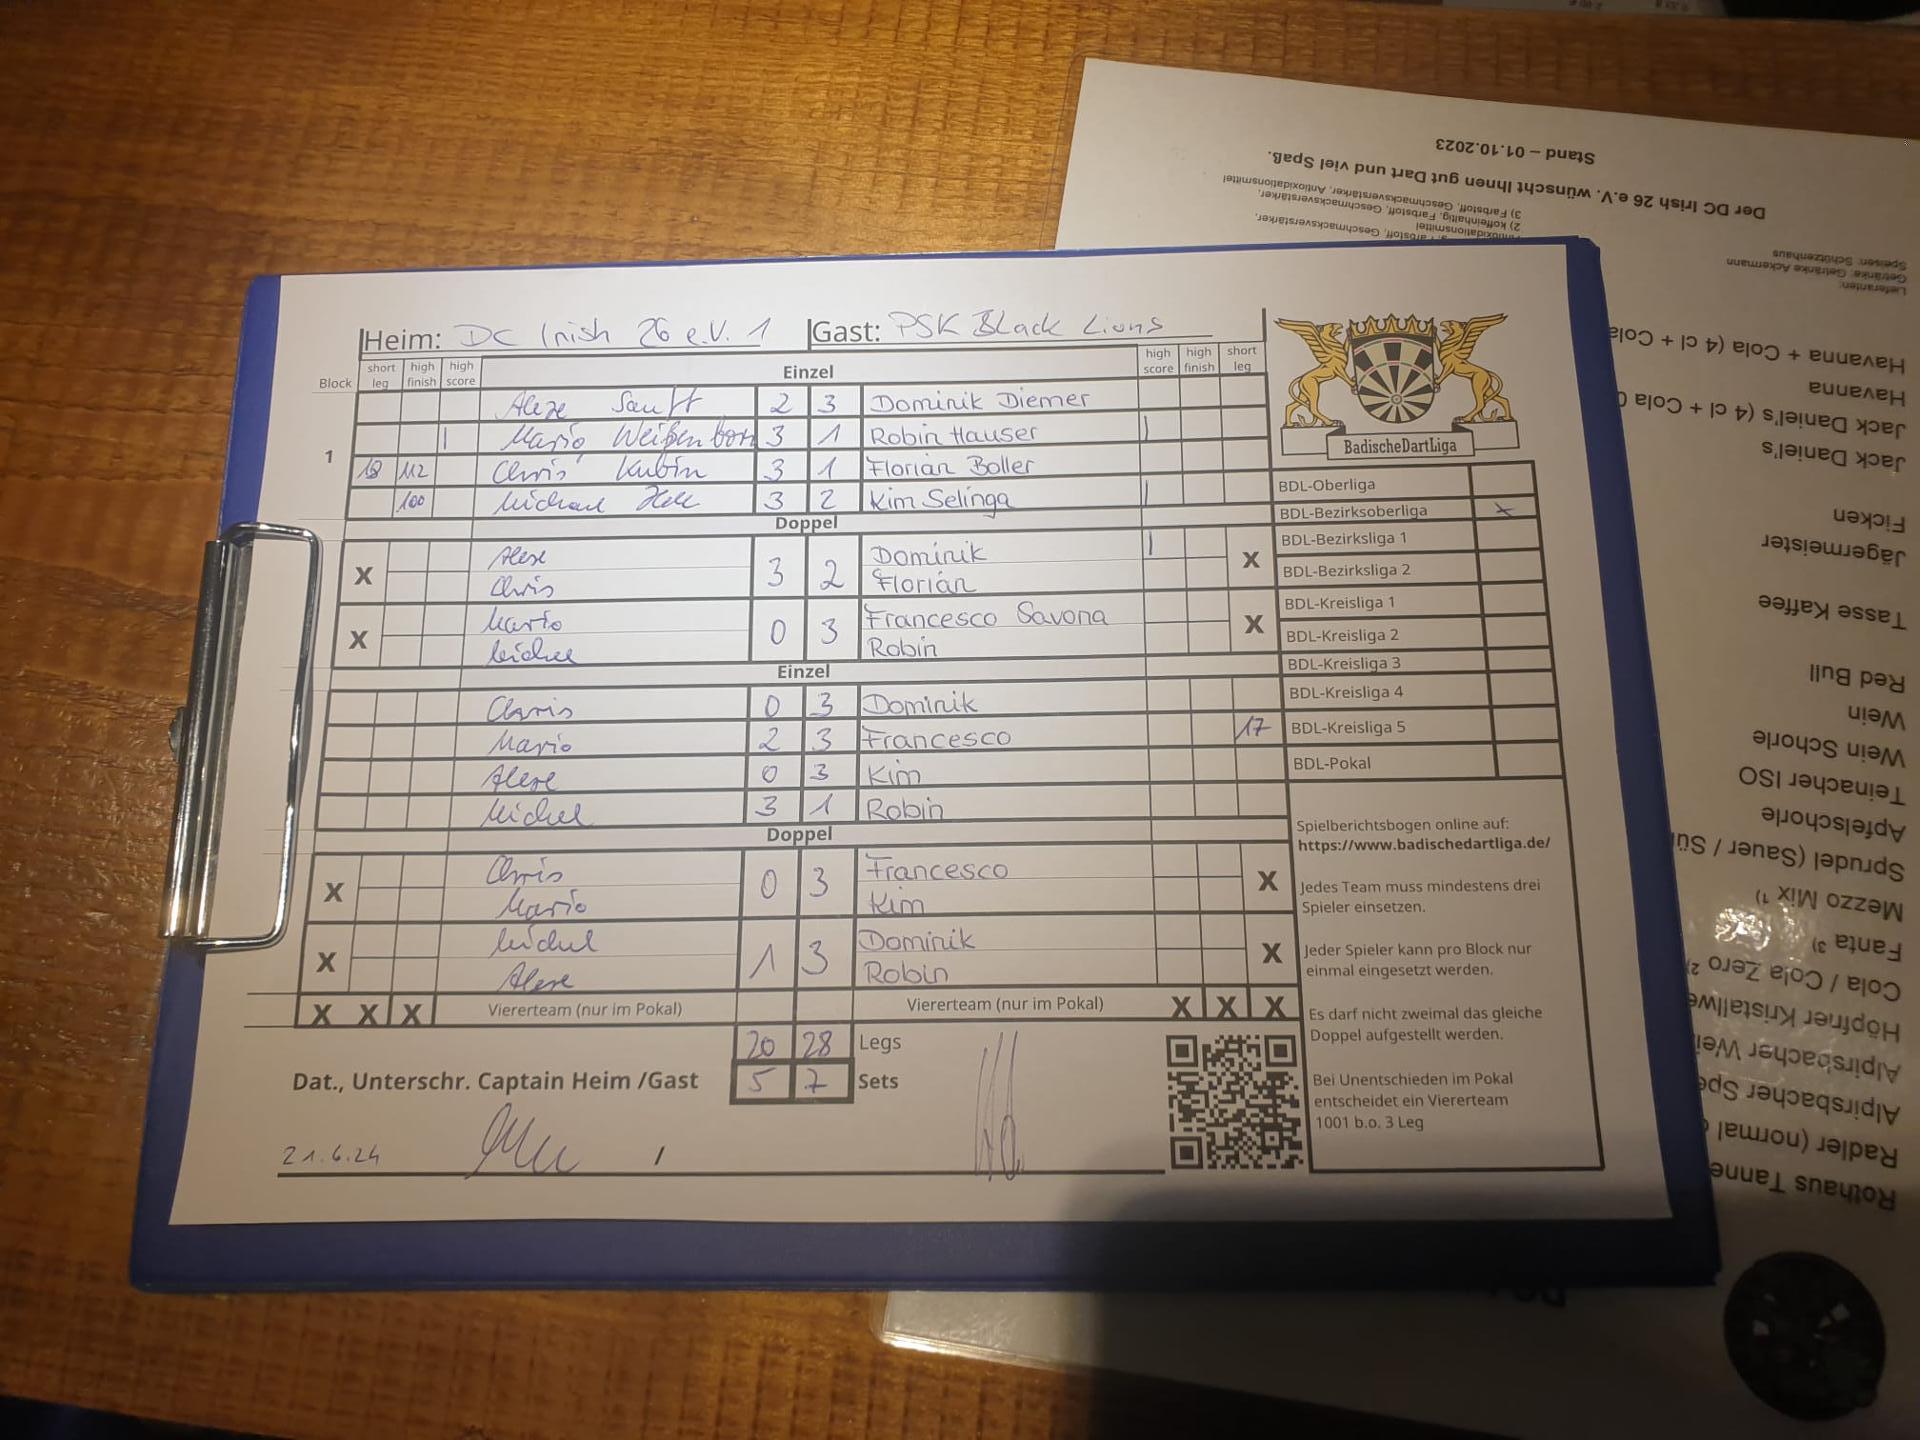 Heim: DC Irish 26 e.V. 1 Gast: PSK Black Lions
Block short leg high finish high score Einzel high score high finish short leg
Alexe Sanft 2 3 Dominik Diemer
| Mario Weißenborn 3 1 Robin Hauser |
1
18 112 Chris Kubin 3 1 Florian Boller
100 Michael 3 2 Kim Selinga |
Doppel
X Alexe 3 2 Dominik | X
Chris Florian
X Mario 0 3 Francesco Savona X
Michel Robin
Einzel
Chris 0 3 Dominik
Mario 2 3 Francesco 17
Alexe 0 3 Kim
Michel 3 1 Robin
Doppel
X Chris 0 3 Francesco X
Mario Kim
X Michel 1 3 Dominik X
Alexe Robin
X X X Viererteam (nur im Pokal) Viererteam (nur im Pokal) X X X
20 28 Legs
Dat., Unterschr. Captain Heim /Gast 5 7 Sets
21.6.24 /
BadischeDartLiga
BDL-Oberliga
BDL-Bezirksoberliga x
BDL-Bezirksliga 1
BDL-Bezirksliga 2
BDL-Kreisliga 1
BDL-Kreisliga 2
BDL-Kreisliga 3
BDL-Kreisliga 4
BDL-Kreisliga 5
BDL-Pokal
Spielberichtsbogen online auf:
https://www.badischedartliga.de/
Jedes Team muss mindestens drei
Spieler einsetzen.
Jeder Spieler kann pro Block nur
einmal eingesetzt werden.
Es darf nicht zweimal das gleiche
Doppel aufgestellt werden.
Bei Unentschieden im Pokal
entscheidet ein Viererteam
1001 b.o. 3 Leg
Rothaus Tanne
Radler (normal
Alpirsbacher Spe
Alpirsbacher Wei
Höpfner Kristallwe
Cola / Cola Zero ²⁾
Fanta ³⁾
Mezzo Mix ¹⁾
Sprudel (Sauer / Sü
Apfelschorle
Teinacher ISO
Wein Schorle
Wein
Red Bull
Tasse Kaffee
Jägermeister
Ficken
Jack Daniel's
Jack Daniel's (4 cl + Cola
Havanna
Havanna + Cola (4 cl + Cola
Lieferanten:
Getränke: Getränke Ackermann
Speisen: Schützenhaus
2) koffeinhaltig, Farbstoff, Geschmacksverstärker,
Antioxidationsmittel
3) Farbstoff, Geschmacksverstärker, Antioxidationsmittel
Der DC Irish 26 e.V. wünscht Ihnen gut Dart und viel Spaß.
Stand – 01.10.2023